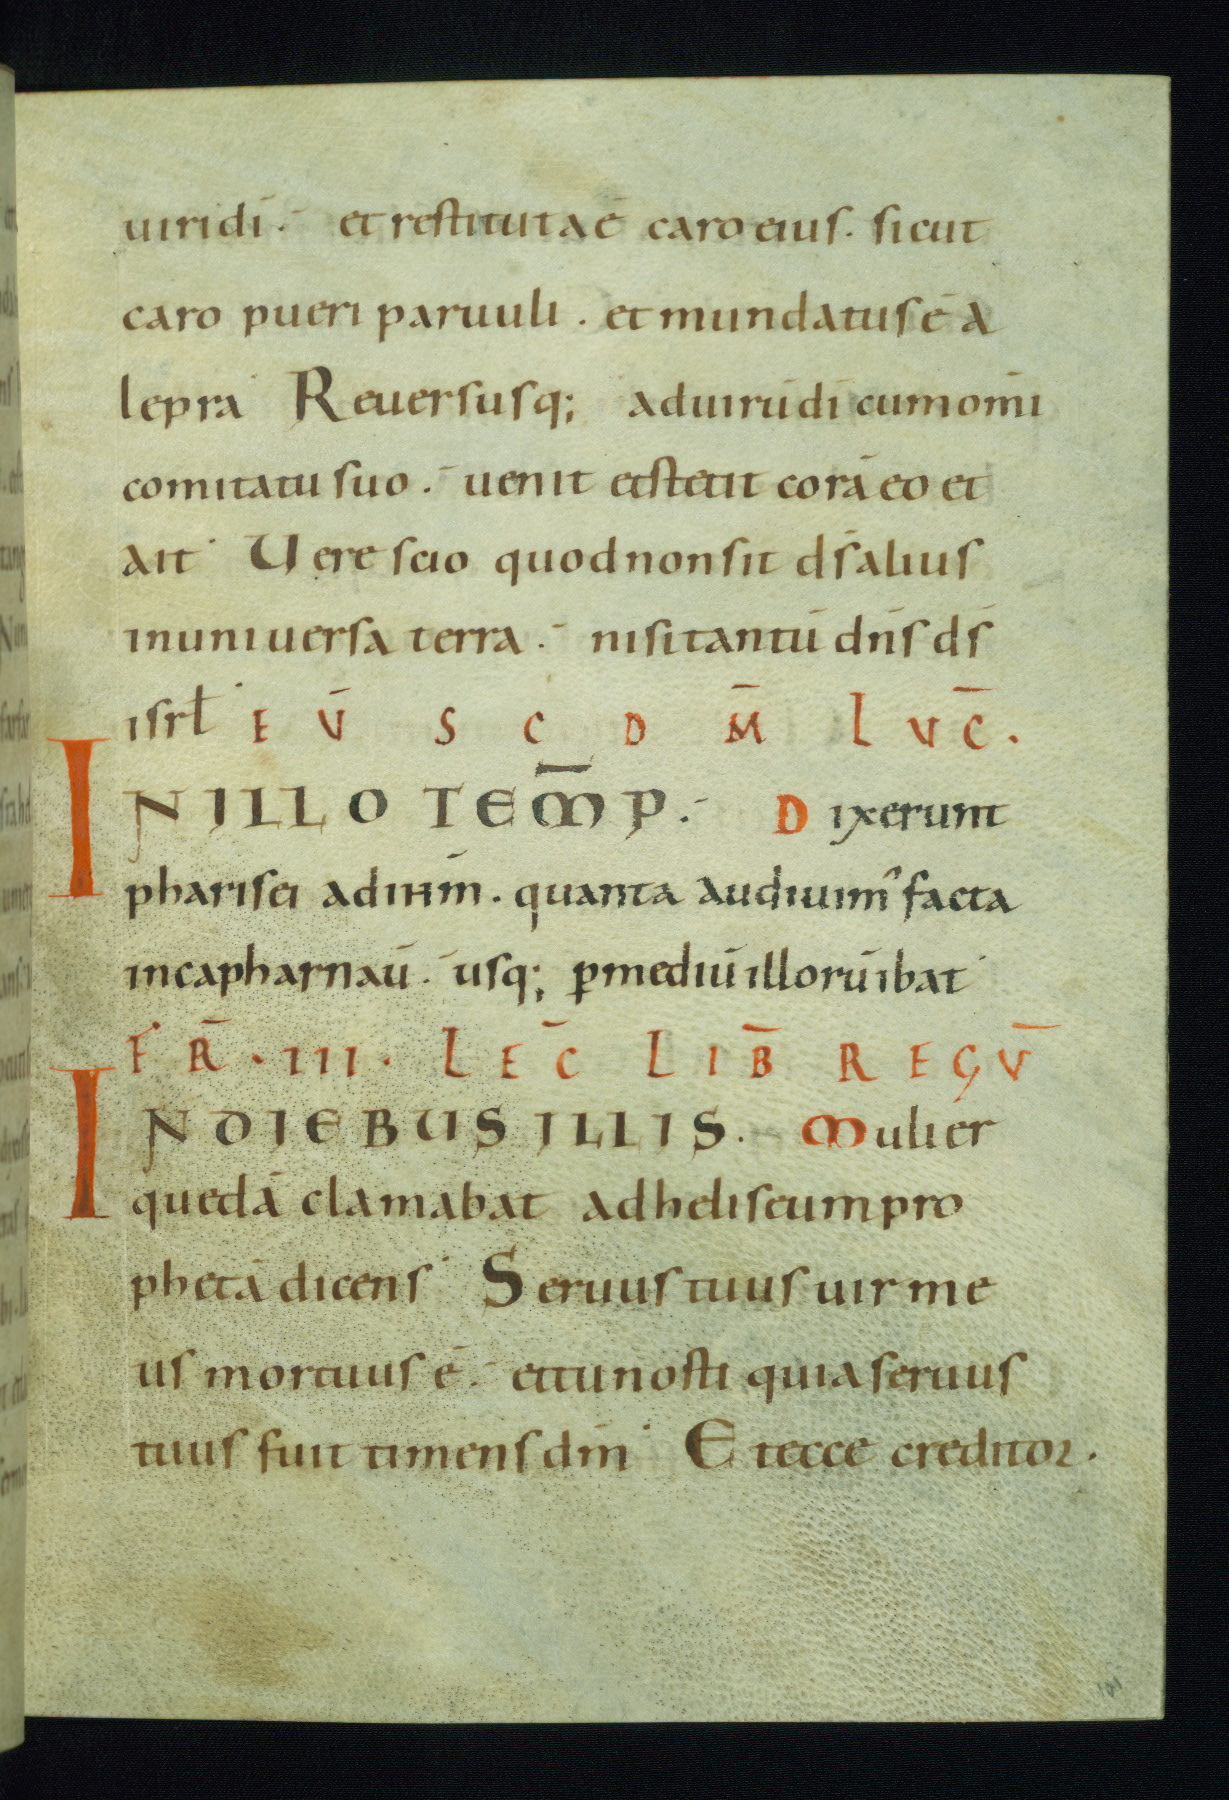 uiridī· et restituta ē caro eius. sicut
caro pueri paruuli. et mundatus ē a
lepra Reuersusq; ad uirū dī cum omī
comitatu suo· uenit et stetit corā eo et
ait Uere scio quod non sit d̄s alius
in uniuersa terra· nisi tantū dn̄s d̄s
isrł EŪ SCD M̄ LUC̄.
IN ILLO TEM̄P· Dixerunt
pharisei ad ihm̄. quanta audiuim᾽ facta
in capharnaū· usq; ꝑ mediū illorū ibat
FR̄·III· LEC̄ LIB̄ REGŪ
IN DIEBUS ILLIS. Mulier
quedā clamabat ad heliseum pro
phetā dicens Seruus tuus uir me
us mortuus ē· et tu nosti quia seruus
tuus fuit timens dm̄ Et ecce creditor.